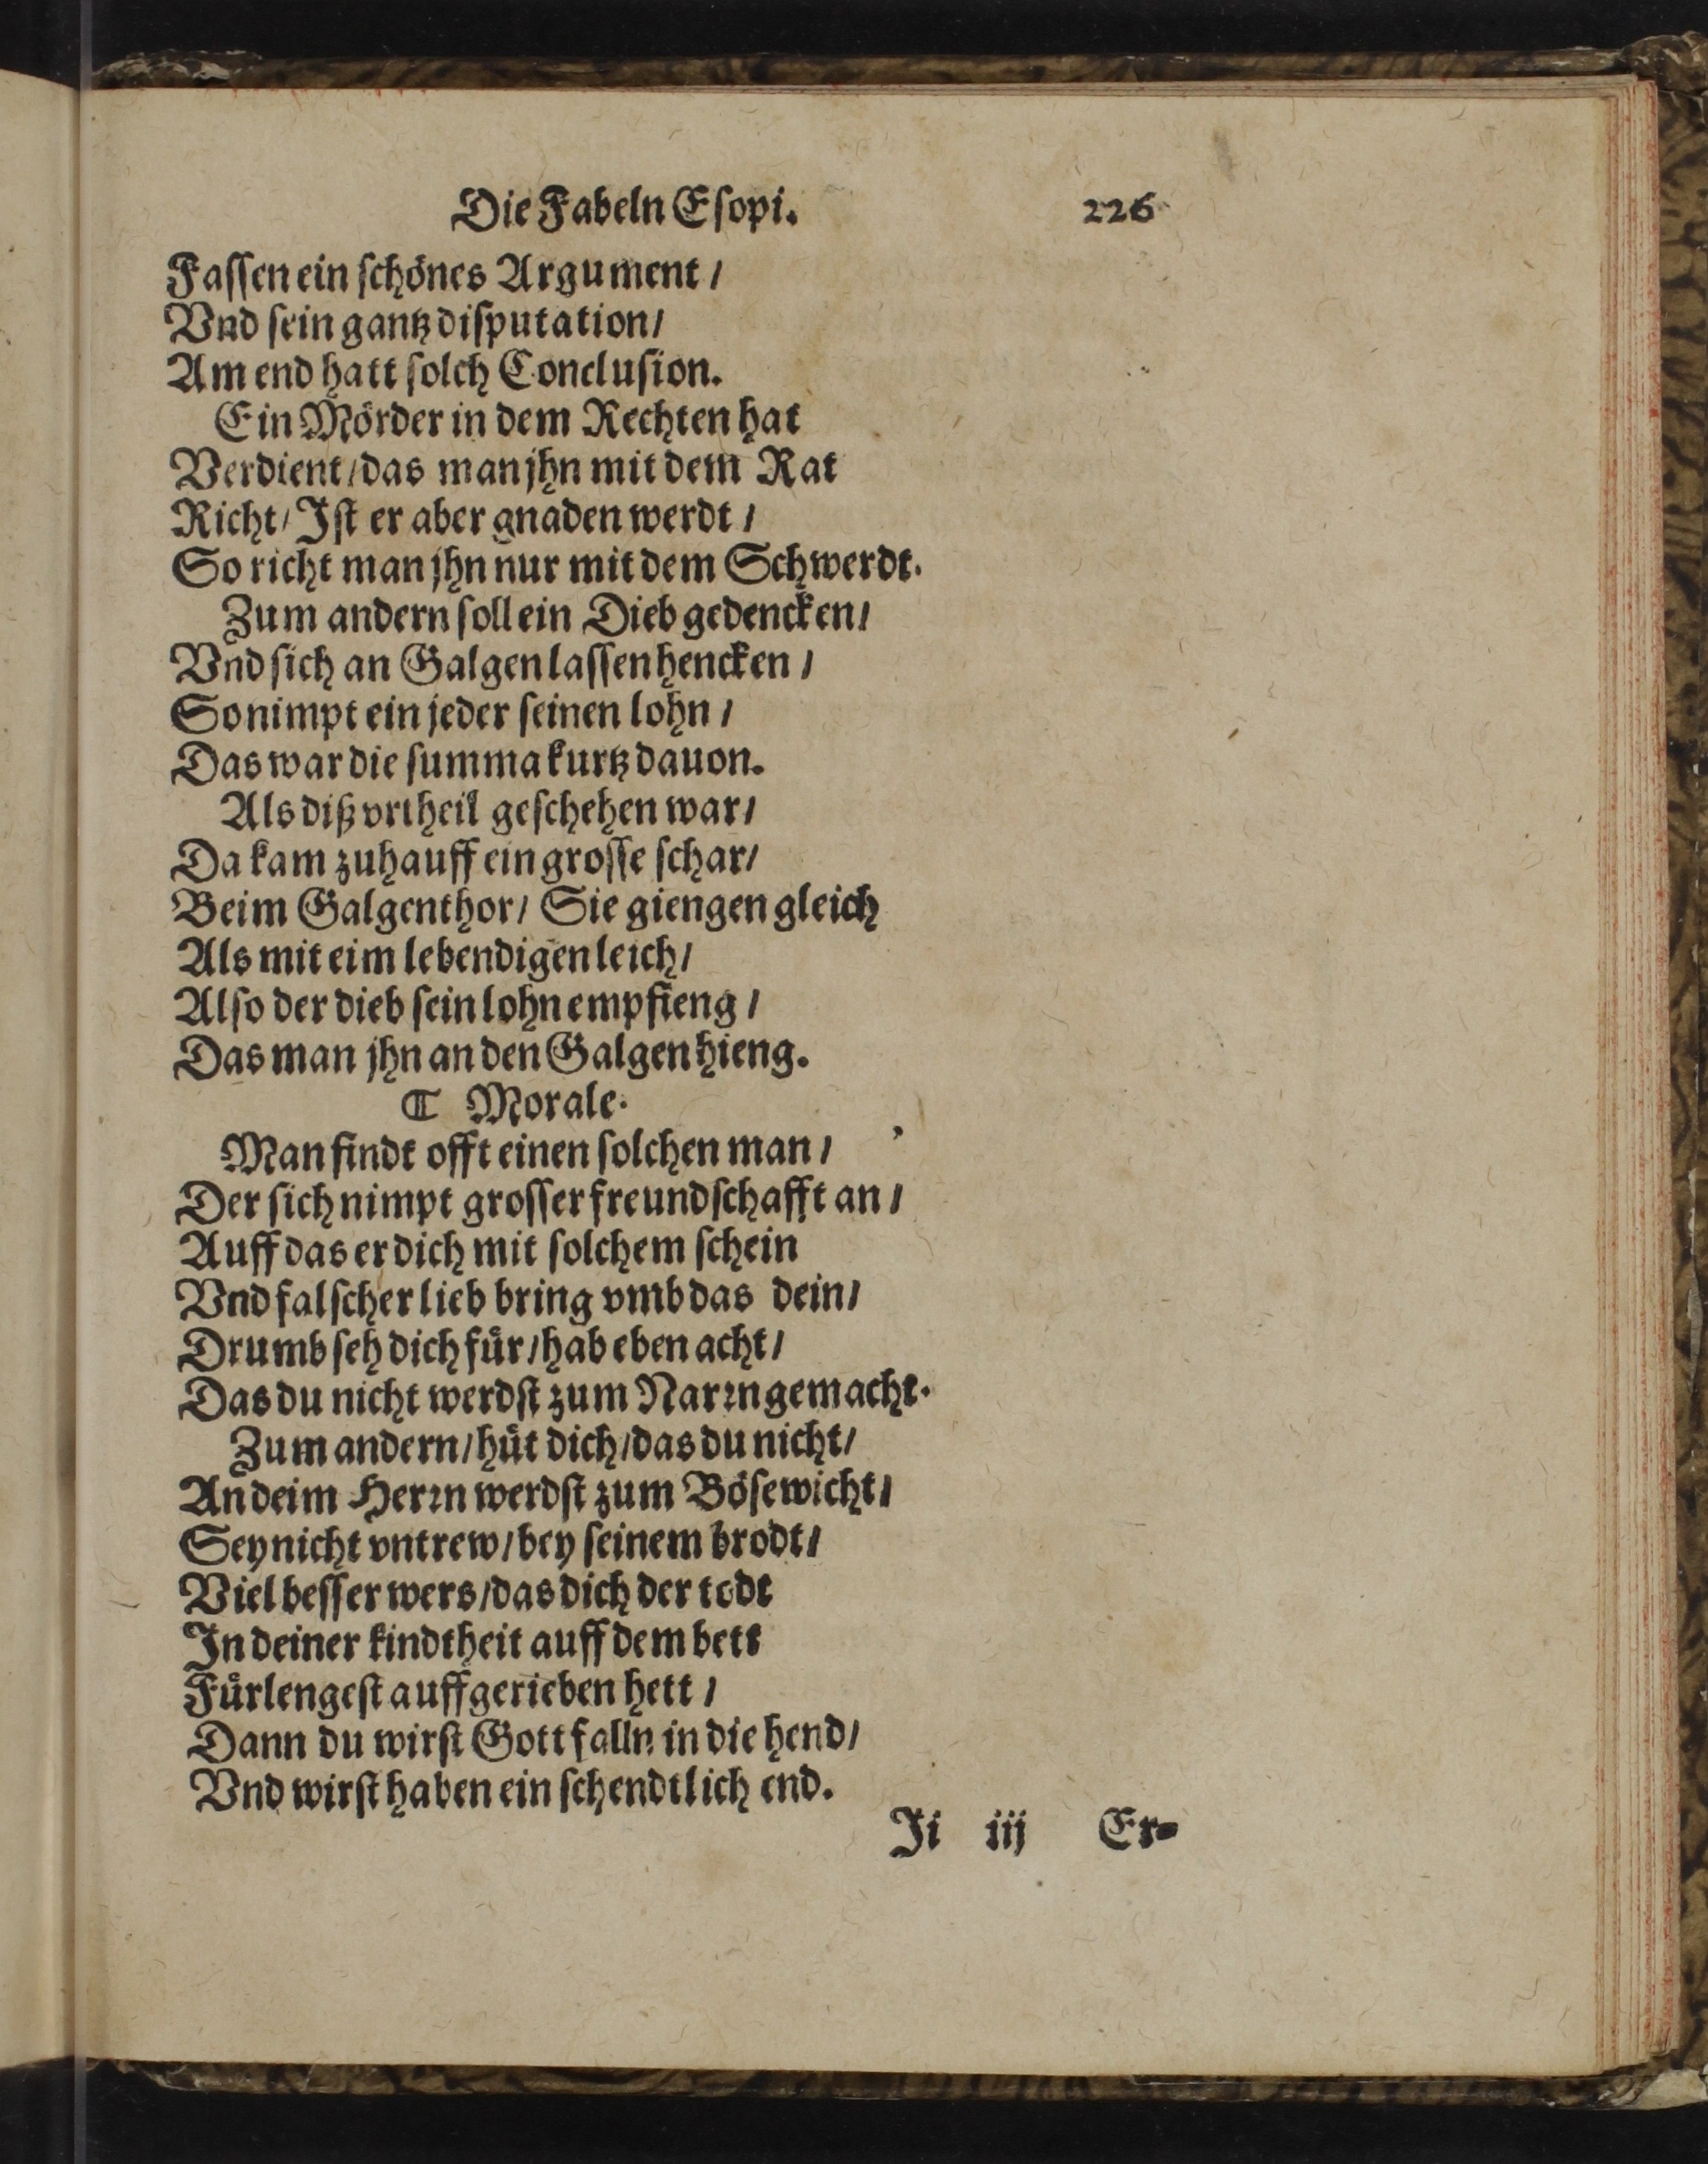 Die Fabeln Eſopi. 226
Faſſen ein ſchoͤnes Argument /
Vnd ſein gantz diſputation /
Am end hatt ſolch Concluſion.
Ein Moͤrder in dem Rechten hat
Verdient / das man jhn mit dem Rat
Richt / Iſt er aber gnaden werdt /
So richt man jhn nur mit dem Schwerdt.
Zum andern ſoll ein Dieb gedencken /
Vnd ſich an Galgen laſſen hencken /
So nimpt ein jeder ſeinen lohn /
Das war die ſumma kurtz dauon.
Als diß vrtheil geſchehen war /
Da kam zuhauff ein groſſe ſchar /
Beim Galgenthor / Sie giengen gleich
Als mit eim lebendigen leich /
Alſo der dieb ſein lohn empfieng /
Das man jhn an den Galgen hieng.
⁋ Morale.
Man findt offt einen ſolchen man /
Der ſich nimpt groſſer freundſchafft an /
Auff das er dich mit ſolchem ſchein
Vnd falſcher lieb bring vmb das dein /
Drumb ſeh dich fuͤr / hab eben acht /
Das du nicht werdſt zum Narꝛn gemacht.
Zum andern / huͤt dich / das du nicht /
An deim Herꝛn werdſt zum Boͤſewicht /
Sey nicht vntrew / bey ſeinem brodt /
Viel beſſer wers / das dich der todt
In deiner kindtheit auff dem bett
Fuͤrlengeſt auffgerieben hett /
Dann du wirſt Gott falln in die hend /
Vnd wirſt haben ein ſchendtlich end.
Ii iij Er⸗